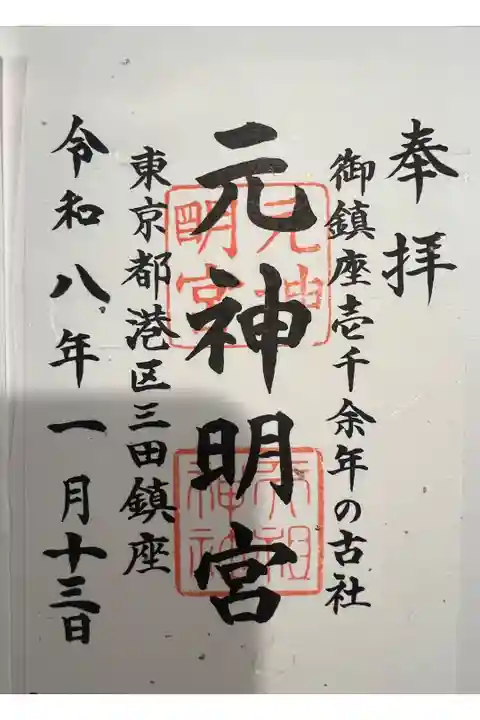 奉拝
御鎮座壱千余年の古社
元神明宮
東京都港区三田鎮座
令和八年一月十三日
元神明宮
天祖神社